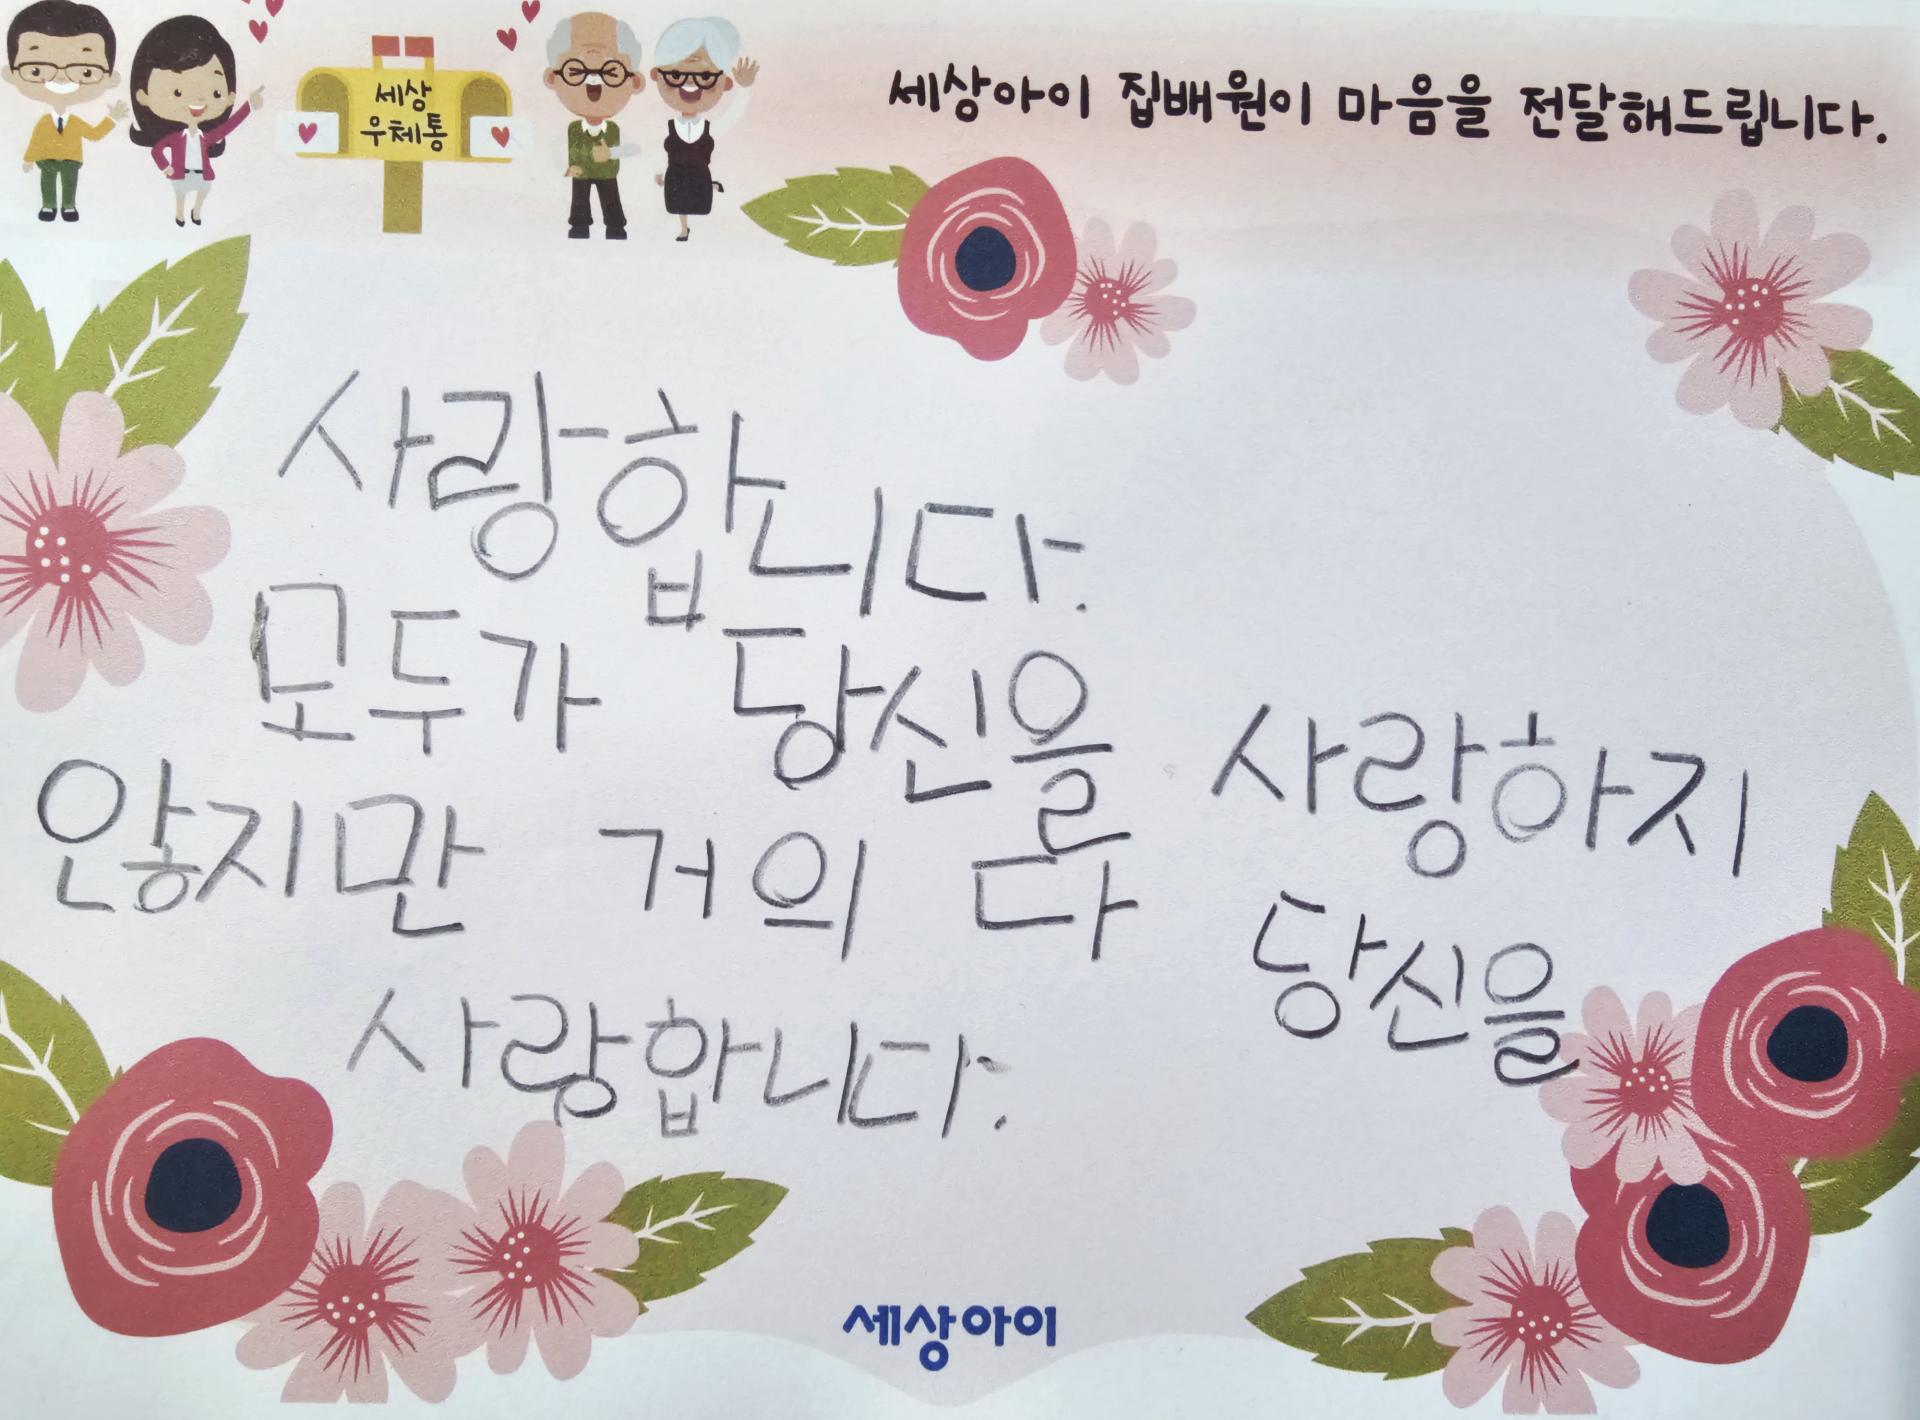 세상
우체통
세상아이 집배원이 마음을 전달해드립니다.
사랑합니다.
모두가 당신을 사랑하지
않지만 거의 다 당신을
사랑합니다.
세상아이